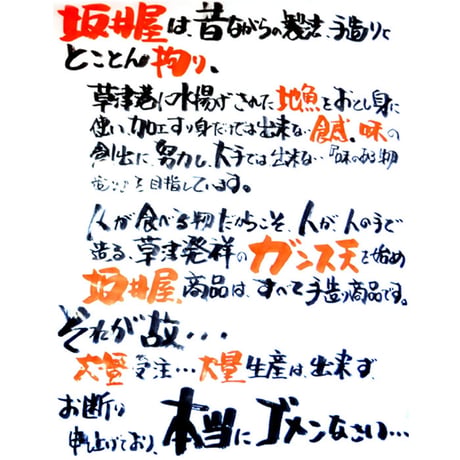 坂井屋は、昔ながらの製法、手造りに
とことん拘り、
草津港に水揚げされた地魚をおとし身に
使い、加工すり身だけでは出来ない食感、味の
創出に、努力し、大手では出来ない『味のある物
造り』を目指しています。
人が食べる物だからこそ、人が人の手で
造る、草津発祥のガンス天を始め
坂井屋、商品は、すべて手造り商品です。
それが故・・・
大量受注・・・大量生産は、出来ず、
お断り
申し上げており、本当にゴメンなさい・・・